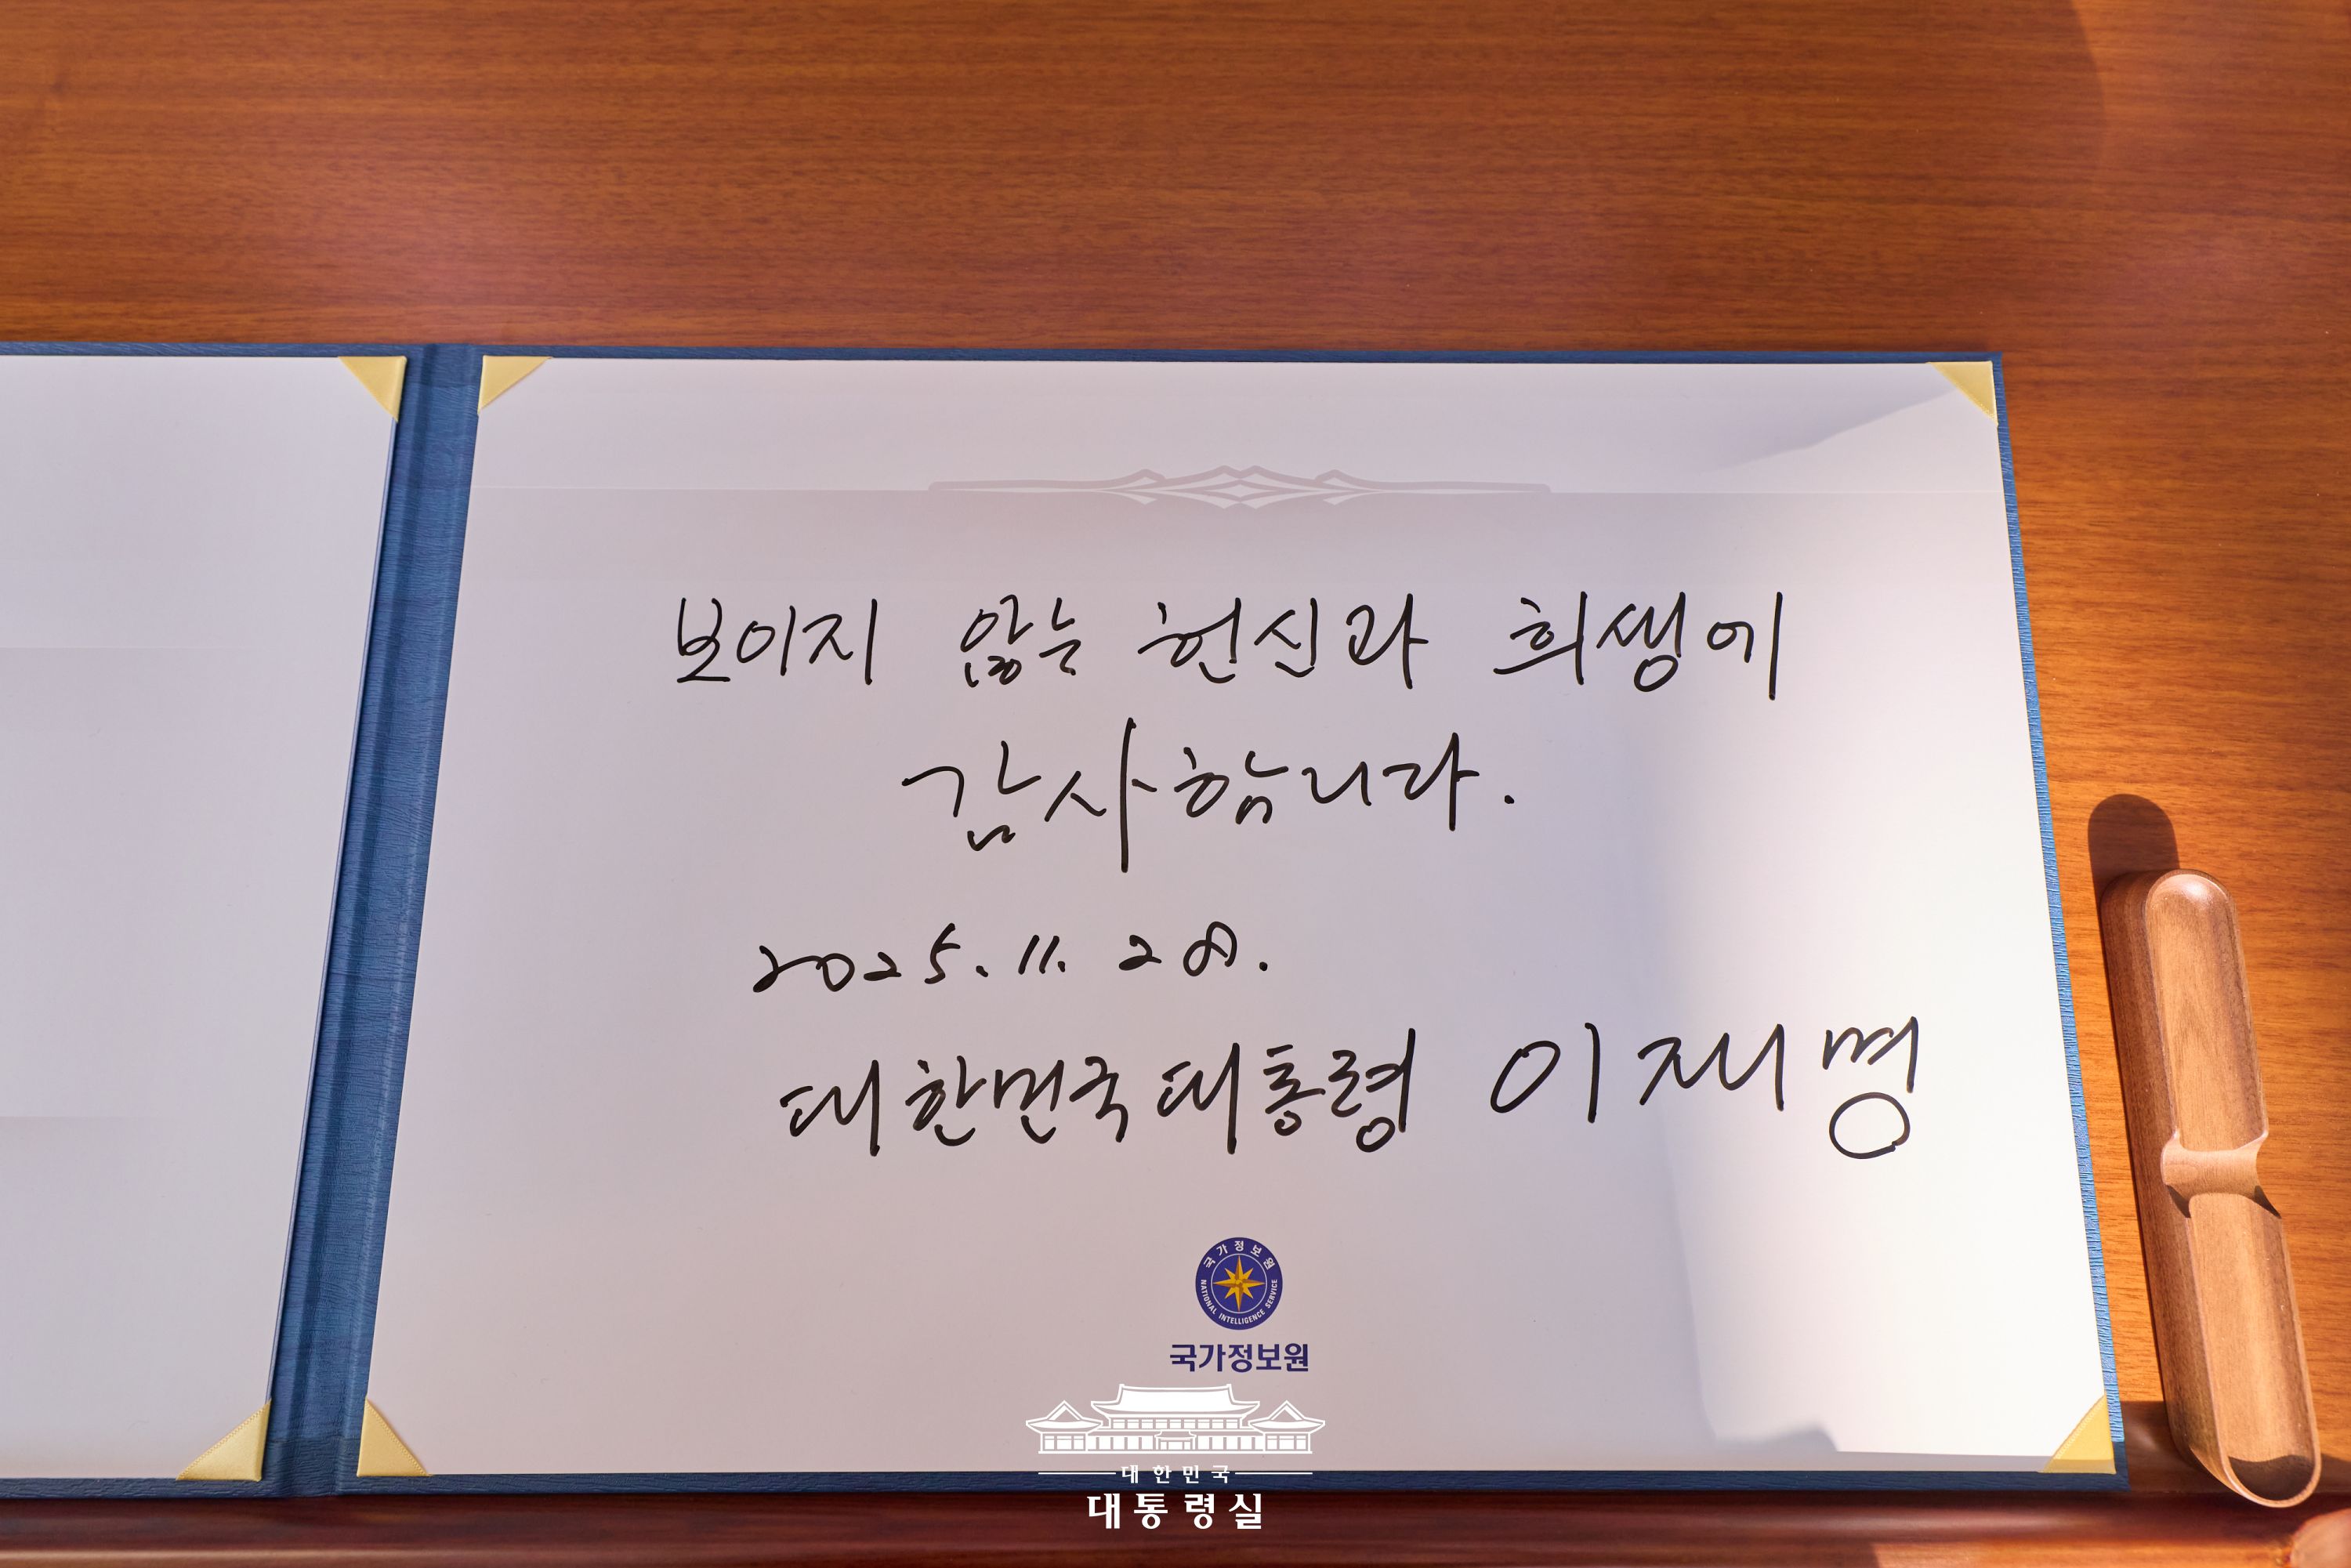 보이지 않는 헌신과 희생에
감사합니다.
2025. 11. 28.
대한민국 대통령 이재명
국가정보원
NATIONAL INTELLIGENCE SERVICE
국가정보원
대한민국
대통령실